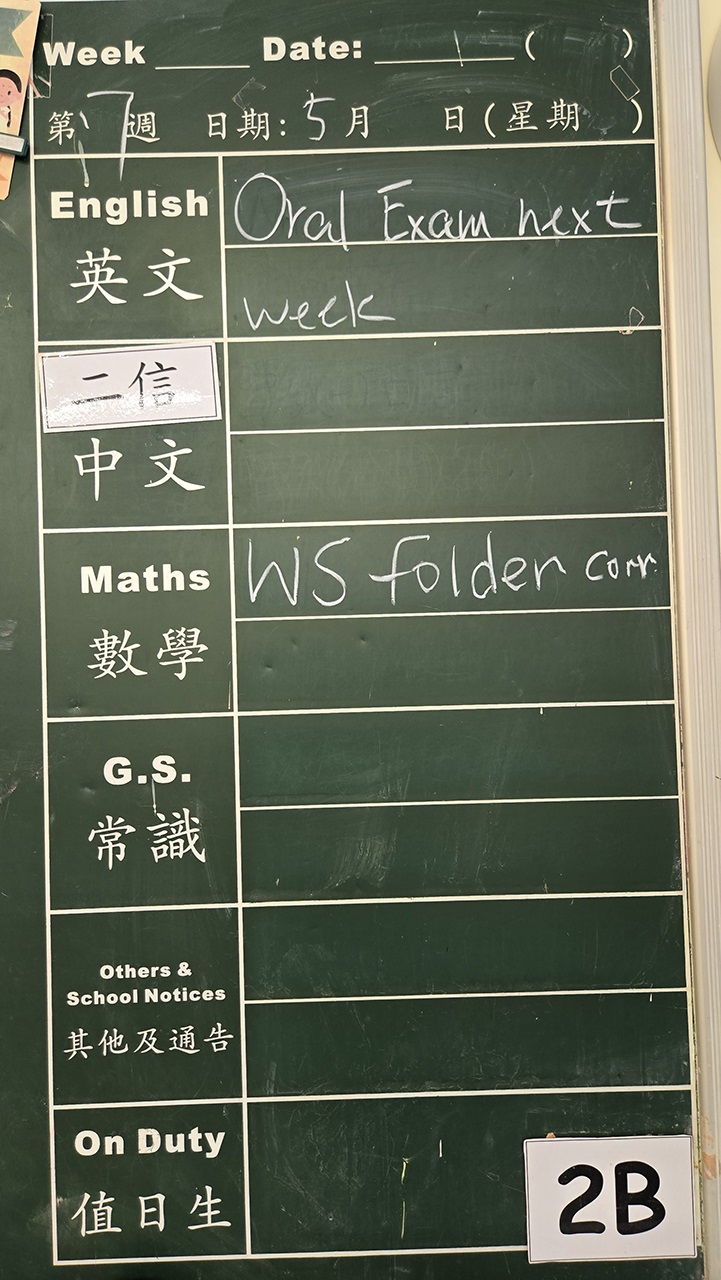 Week ____ Date: ______ ( )
第17週 日期:5月 日(星期 )
English Oral Exam next
英文 week
二信
中文
Maths WS folder corr.
數學
G.S.
常識
Others &
School Notices
其他及通告
On Duty
值日生
2B